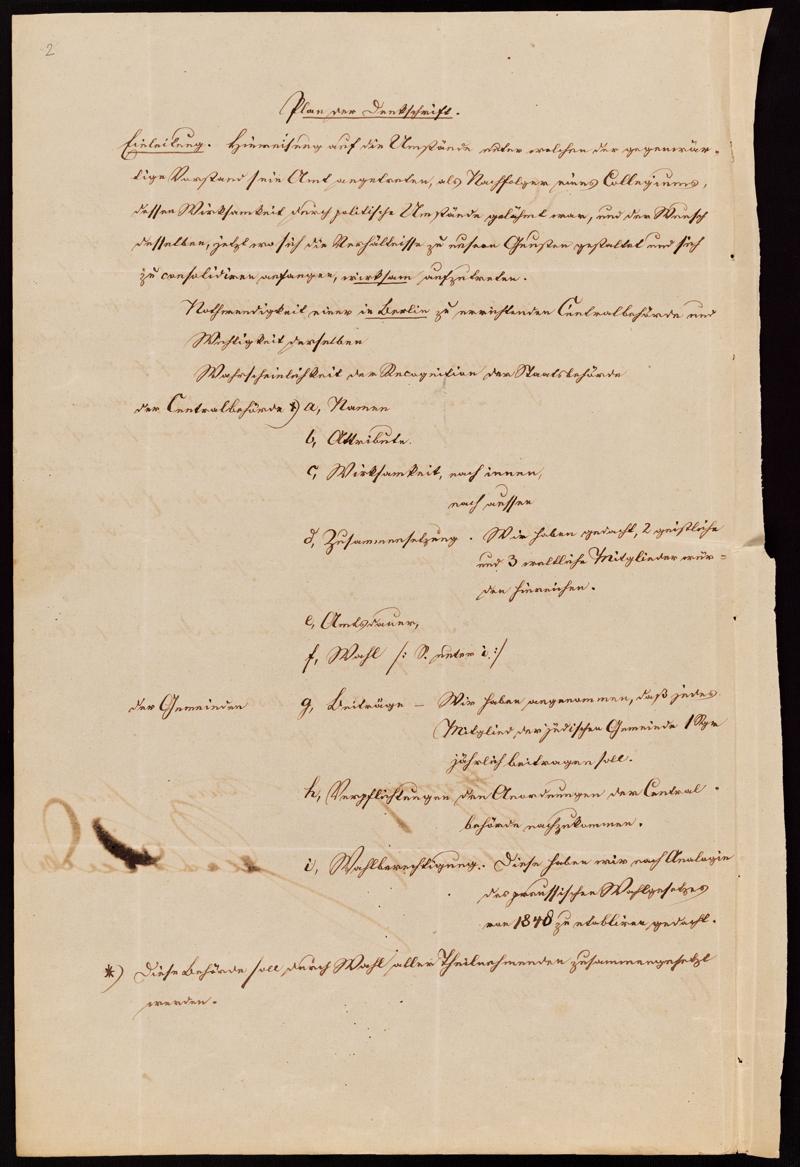 2
Plan der Denkschrift.
Einleitung. Hinweisung auf die Umstände unter welchen der gegenwär-
tige Vorstand sein Amt angetreten, als Nachfolger eines Collegiums,
dessen Wirksamkeit durch politische Umstände gelähmt war, und der Wunsch
desselben, jetzt wo sich die Verhältnisse zu unsern Gunsten gestaltet und sich
zu consolidiren anfangen, wirksam aufzutreten.
Nothwendigkeit einer in Berlin zu errichtenden Centralbehörde und
Wichtigkeit derselben
Wahrscheinlichkeit der Recognition der Staatsbehörde
der Centralbehörde *) a, Namen
b, Attribute.
c, Wirksamkeit, nach innen,
nach aussen
d, Zusammensetzung. Wir haben gedacht, 2 geistliche
und 3 weltliche Mitglieder wür-
den hinreichen.
e, Amtsdauer,
f, Wahl /: S. unter i :/
der Gemeinden g, Beiträge – Wir haben angenommen, daß jedes
Mitglied der jüdischen Gemeinde 1 Sgr
jährlich beitragen soll.
h, Verpflichtungen den Anordnungen der Central-
behörde nachzukommen.
i, Wahlberechtigung. Diese haben wir nach Analogie
des preussischen Wahlgesetzes
von 1848 zu etabliren gedacht.
*) Diese Behörde soll durch Wahl aller Theilnehmenden zusammengesetzt
werden.